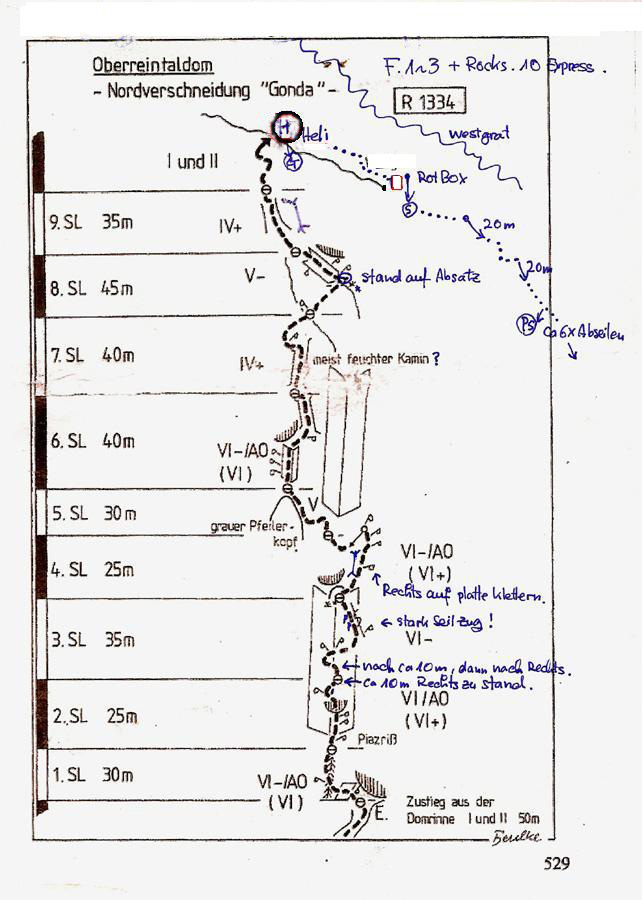 Oberreintaldom
- Nordverschneidung "Gonda" -
F. 1~3 + Rocks. 10 Express.
R 1334
Westgrat
H Heli
I und II
Rot Box
S
9. SL 35m
IV+
20m
V-
stand auf Absatz
20m
8. SL 45m
PS
ca 6x Abseilen
7. SL 40m
IV+
meist feuchter Kamin ?
6. SL 40m
VI-/A0
(VI)
5. SL 30m
V
grauer Pfeiler-
kopf
4. SL 25m
VI-/A0
(VI+)
Rechts auf platte klettern.
stark Seilzug !
3. SL 35m
VI-
nach ca 10m, dann nach Rechts.
ca 10m Rechts zu stand.
2. SL 25m
VI/A0
(VI+)
Piazriß
1. SL 30m
VI-/A0
(VI)
E.
Zustieg aus der
Domrinne I und II 50m
529